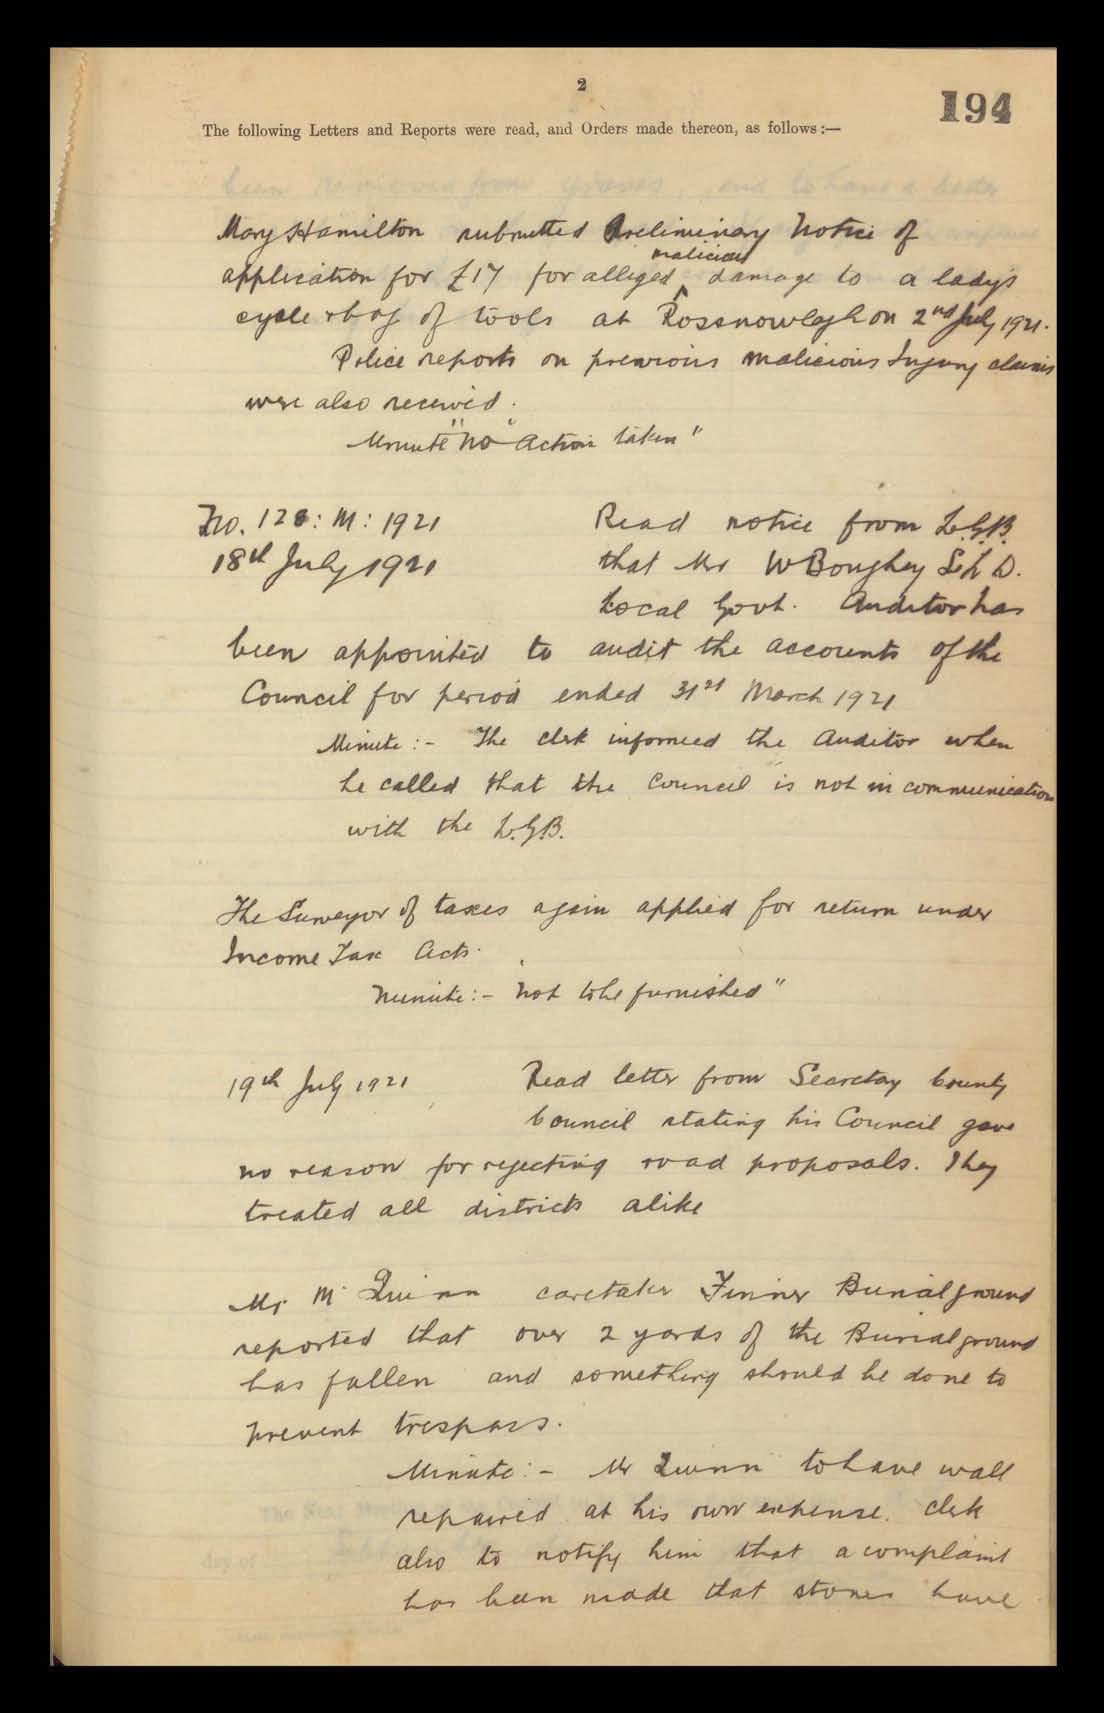 2
194
The following Letters and Reports were read, and Orders made thereon, as follows :—
Mary Hamilton submitted Preliminary Notice of
application for £17 for alleged malicious damage to a lady's
cycle & bag of tools at Rossnowlagh on 2nd July 1921.
Police reports on previous malicious Injury claims
were also received.
Minute "No action taken"
No. 128 : M : 1921
18th July 1921
Read notice from L.G.B.
that Mr W Boughey
Local Govt. Auditor has
been appointed to audit the accounts of the
Council for period ended 31st March 1921
Minute :- The clerk informed the Auditor when
he called that the Council is not in communication
with the L.G.B.
The Surveyor of taxes again applied for return under
Income Tax Acts.
Minute :- Not to be furnished"
19th July 1921
Read letter from Secretary County
Council stating his Council gave
no reason for rejecting road proposals. They
treated all districts alike
Mr M Quinn caretaker Finner Burial ground
reported that over 2 yards of the Burial ground
has fallen and something should be done to
prevent trespass.
Minute :- Mr Quinn to have wall
repaired at his own expense. Clerk
also to notify him that a complaint
has been made that stones have